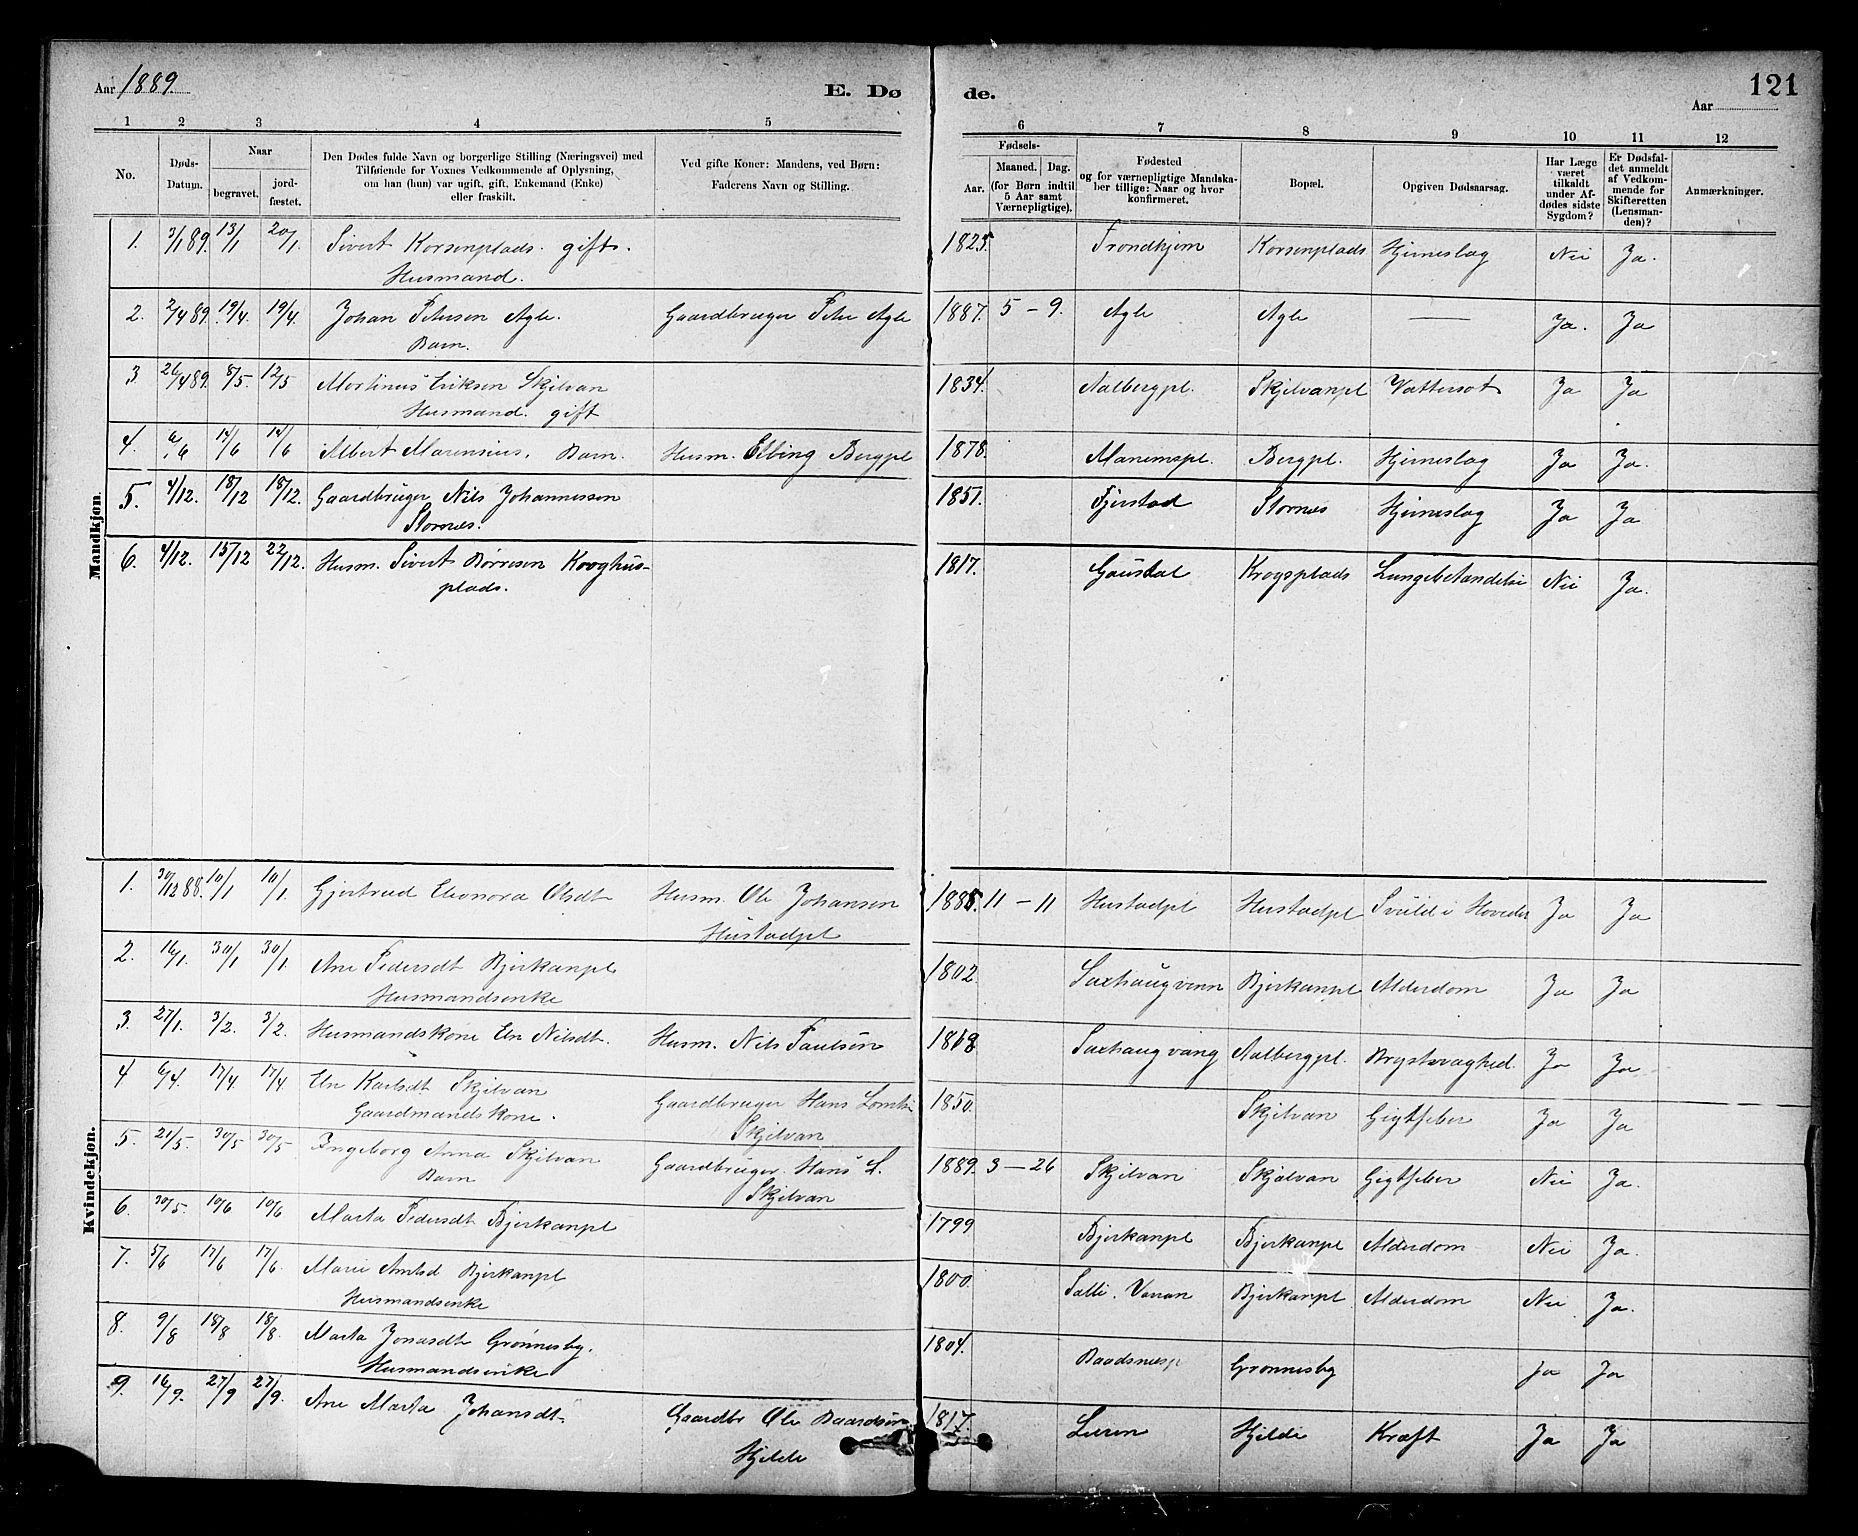 Aar 1889. E. Dø de. 121
Aar
1 2 3 4 5 6 7 8 9 10 11 12
No.
Døds-Datum.
Naar
begravet.
jord-fæstet.
Den Dødes fulde Navn og borgerlige Stilling (Næringsvei) med
Tilføiende for Voxnes Vedkommende af Oplysning,
om han (hun) var ugift, gift, Enkemand (Enke)
eller fraskilt.
Ved gifte Koner: Mandens, ved Børn:
Faderens Navn og Stilling.
Fødsels-
Aar.
Maaned. Dag.
(for Børn indtil
5 Aar samt
Værnepligtige).
Fødested
og for værnepligtige Mandska-
ber tillige: Naar og hvor
konfirmeret.
Bopæl.
Opgiven Dødsaarsag.
Har Læge
været
tilkaldt
under Af-
dødes sidste
Sygdom?
Er Dødsfal-
det anmeldt
af Vedkom-
mende for
Skifteretten
(Lensman-
den)?
Anmærkninger.
Mandkjøn.
1. 3/1 89. 13/1 20/1. Sivert Korsenplads. gift. 1825. Trondhjem Korsenplads Hjerneslag Nei Ja.
Husmand.
2. 2/4 89. 19/4. 19/4. Johan Petersen Agle. Gaardbruger Peter Agle 1887. 5 - 9. Agle Agle — Ja. Ja
Barn.
3. 26/4 89. 8/5. 12/5 Mortinus Eriksen Skjelvan 1834. Aalbergpl. Skjelvanpl Vattersot Ja Ja
Husmand. gift
4. 6/6 14/6 14/6 Albert Marensius. Barn. Husm. Elling Bergpl 1878. Manemspl. Bergpl. Hjerneslag Ja Ja.
5. 4/12. 18/12 18/12. Gaardbruger Nils Johannessen 1851. Fjerstad Stornes Hjerneslag Ja Ja
Stornes.
6. 4/12. 15/12 22/12. Husm. Sivert Børresen Krooghus- 1817. Goustad Krogsplads Lungebetændelse Nei Ja.
plads.
Kvindekjøn.
1. 30/12 88. 10/1 10/1. Gjertrud Eleonora Olsdt Husm. Ole Johansen 1888. 11 - 11 Hustadpl Hustadpl Svuld i Hovedet Ja Ja
Hustadpl
2. 16/1. 30/1 30/1. Ane Pedersdt Bjerkanpl 1802. Saxhaugvinn Bjerkanpl Alderdom Ja Ja
Husmandsenke
3. 27/1. 3/2. 3/2. Husmandskone Eln Nilsdt. Husm. Nils Paulsen 1818 Saxhaugvang Aalbergpl. Brystsvaghed. Ja Ja
4 6/4. 17/4 17/4 Eln Karlsdt Skjelvan Gaardbruger Hans 1850. Skjelvan Gigtfeber Ja Ja
Gaardmandskone. Skjelvan
5. 21/5. 30/5 30/5 Ingeborg Anna Skjelvan Gaardbruger. Hans L. 1889. 3 - 26 Skjelvan Skjelvan Gigtfeber Nei Ja.
Barn Skjelvan
6. 30/5. 10/6 10/6 Marta Pedersdt Bjerkanpl 1799 Bjerkanpl Bjerkanpl Alderdom Nei Ja.
7. 5/6 17/6 17/6. Marie Arntsd Bjerkanpl 1800. Salli. Værran Bjerkanpl Alderdom Nei Ja.
Husmandsenke
8. 9/8 18/8 18/8. Marta Jonasdt Grønnesby. 1804. Baadsnesp Grønnesby Ja Ja
Husmandsenke
9. 16/9. 27/9 27/9. Ane Marta Johansdt Gaardbr Ole Baardsen 1817. Leren Hjelde Kræft Ja Ja
Hjelde